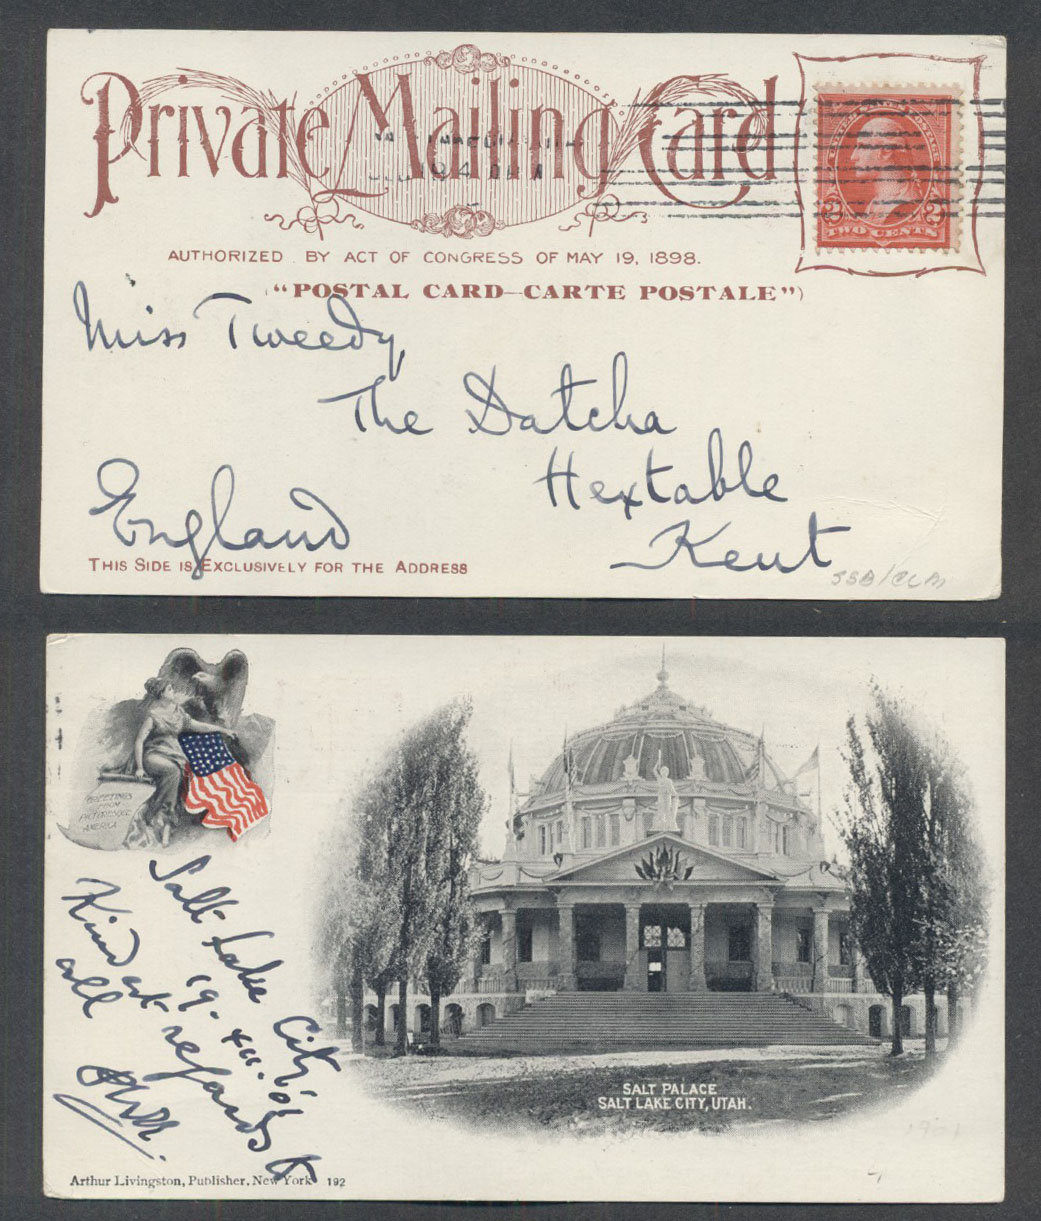 Private Mailing Card
TWO CENTS
AUTHORIZED BY ACT OF CONGRESS OF MAY 19, 1898.
("POSTAL CARD—CARTE POSTALE")
Miss Tweedy,
The Datcha
Hextable
Kent
England
THIS SIDE IS EXCLUSIVELY FOR THE ADDRESS
GREETINGS
FROM
PICTURESQUE
AMERICA
Salt Lake City,
Kindest regards to
all
SALT PALACE
SALT LAKE CITY, UTAH.
1901
Arthur Livingston, Publisher, New York 192